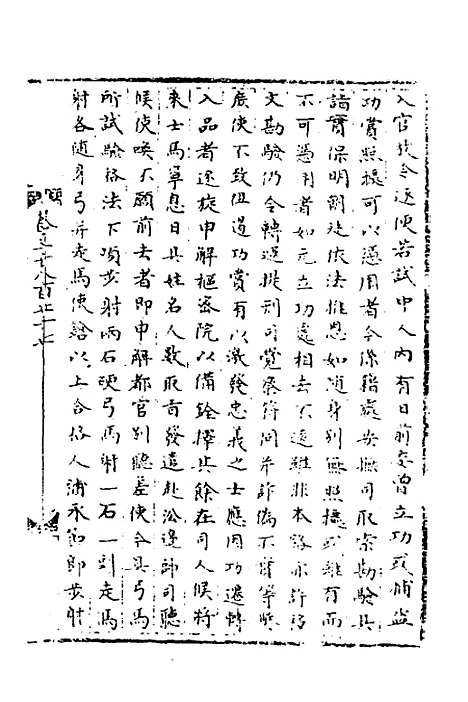 入官放令逐便若試中人內有日前委曾立功或捕盜
功賞照據可以憑用者令保籍處安撫司取索勘驗具
詣實保明創建依法推恩如隨身別無照據或雖有而
不可憑用者如元立功處相去不遠雖非本路亦許移
文勘驗仍令轉運提刑司覺察得同并詐偽不實等事
庶使不致阻遏功賞有以激發忠義之士應用功遷轉
入品者逐旋申解樞密院以備銓擇其餘在司人候將
來士馬寧息日具姓名人數取旨發遣赴沿邊帥司聽
候使喚不願前去者即申解都官別聽差使令具弓馬
所試驗格法下項步射兩石硬弓馬射一石一剅走馬
射各隨身弓并走馬使鎗以上合格人補承節郎步射
卷之千八百九十七